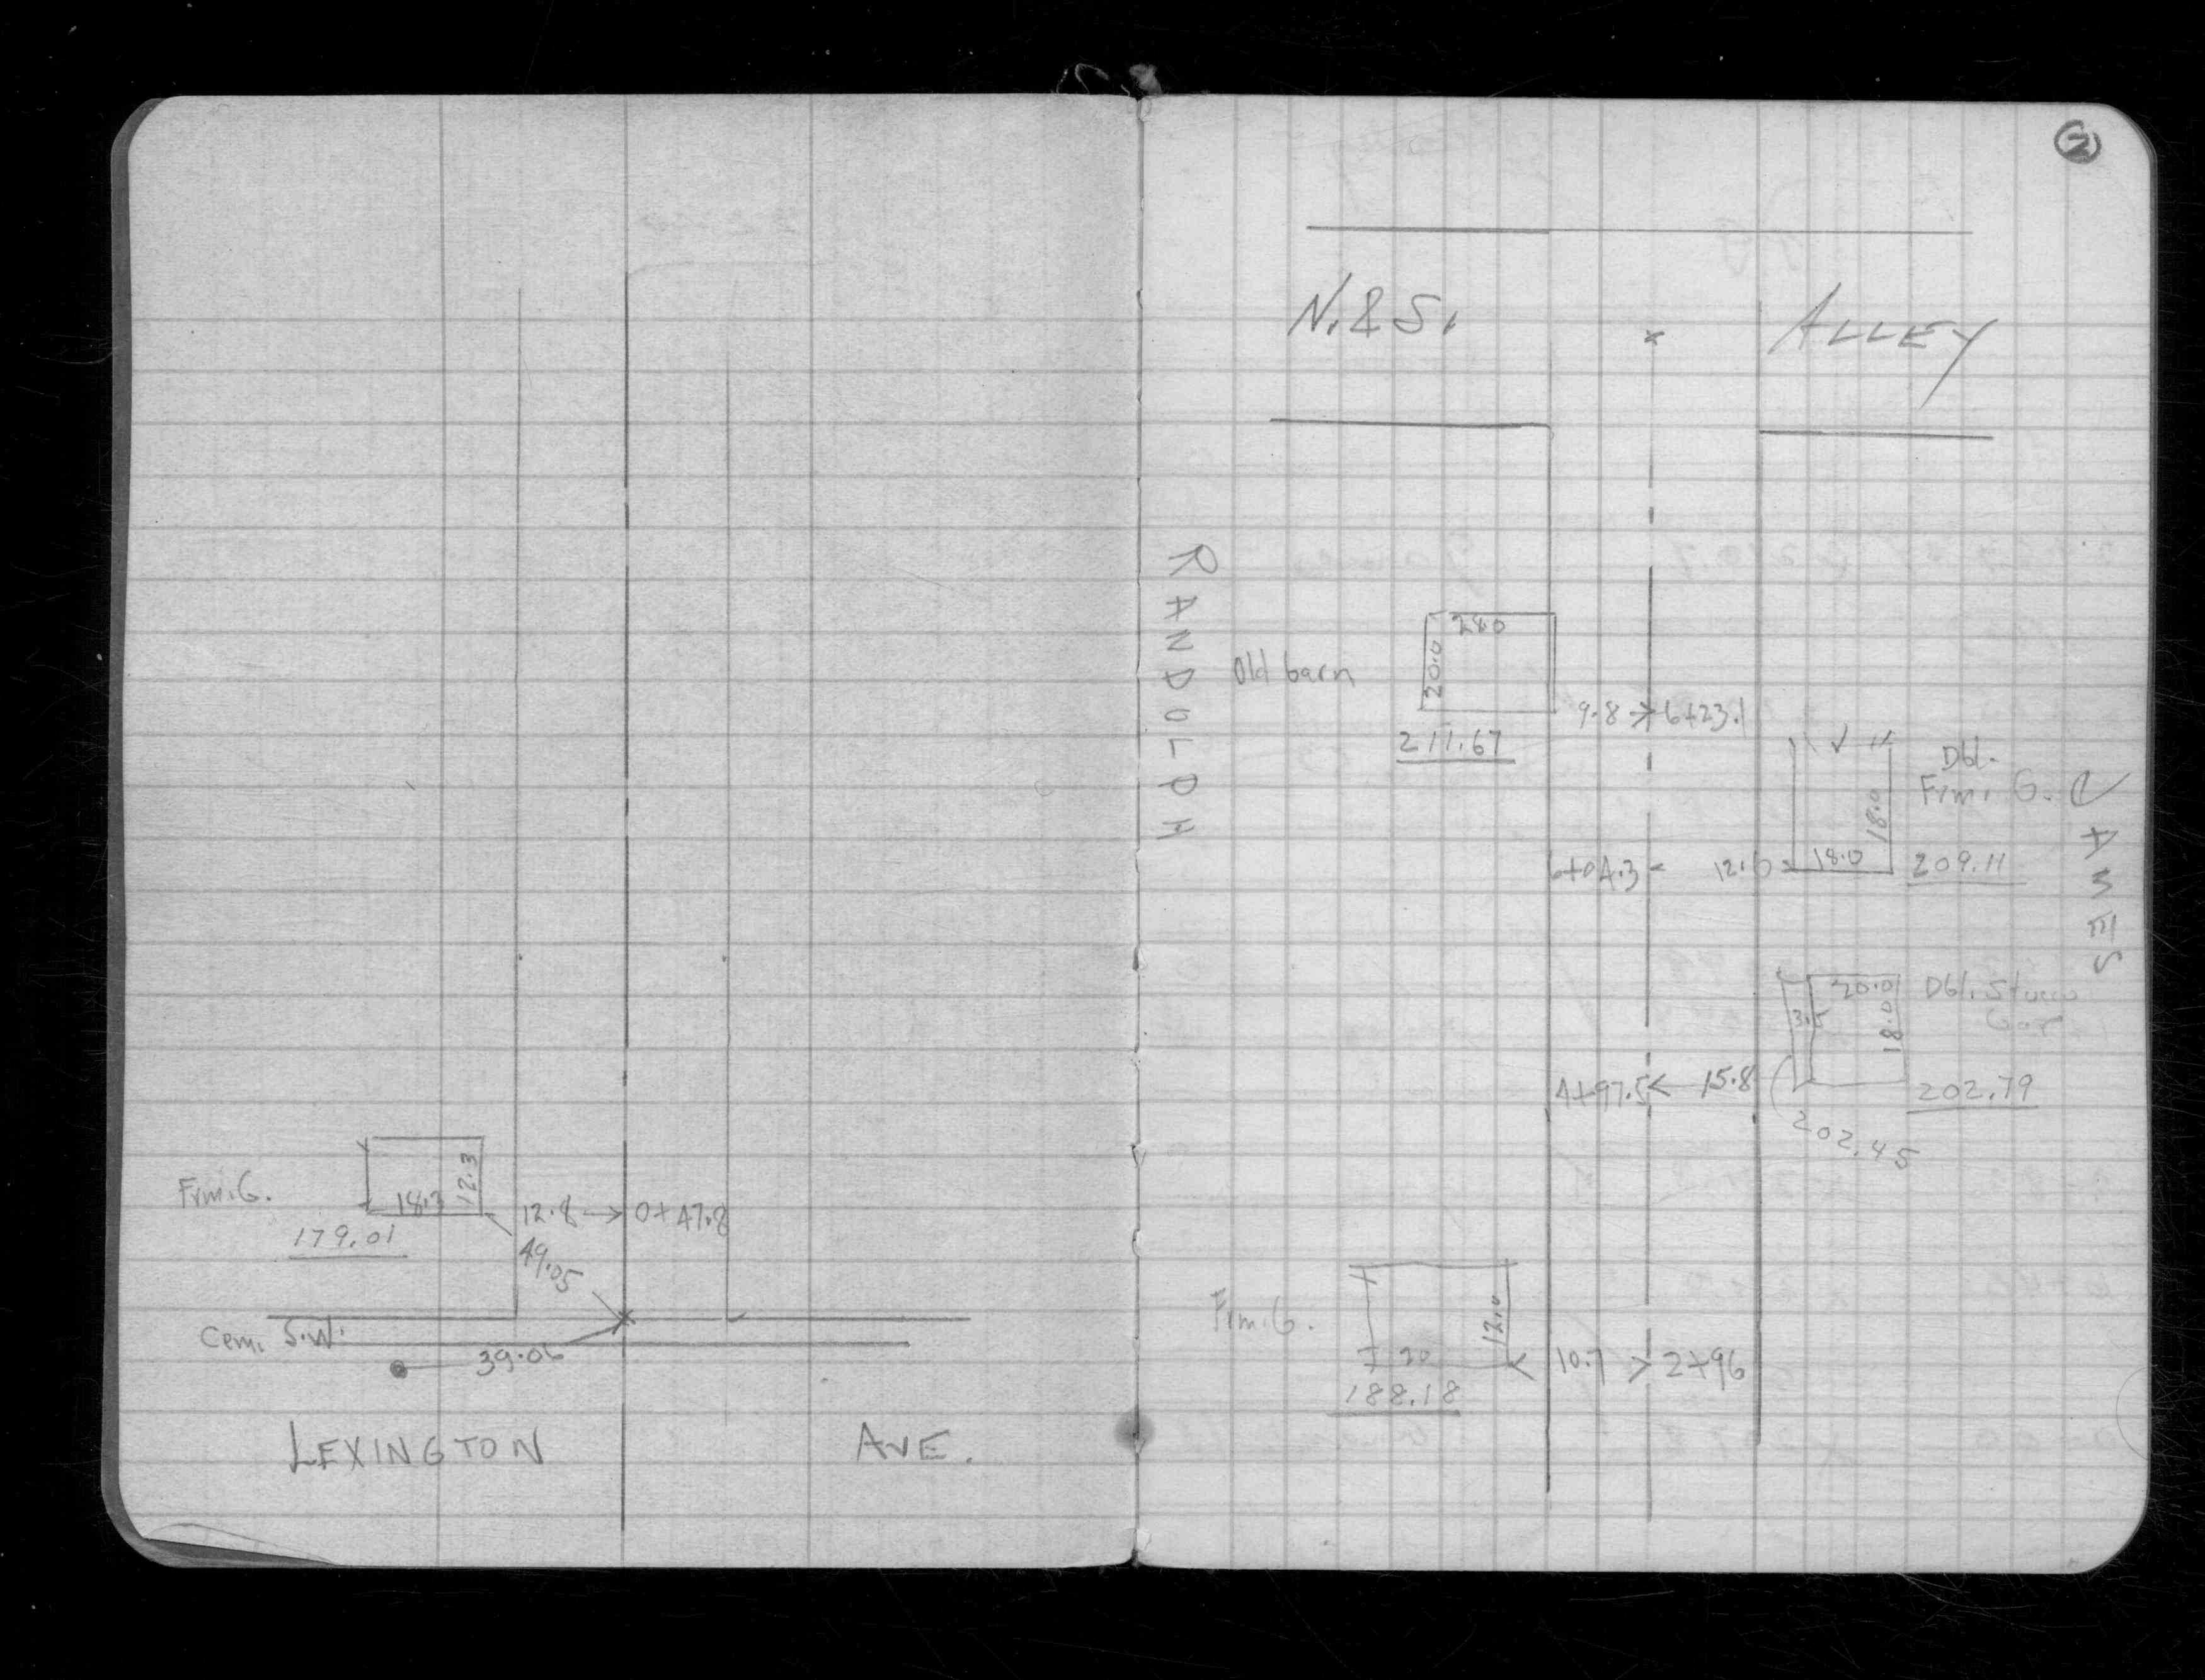 Frm. G.
18.3
12.3
179.01
12.8 → 0+47.8
49.05
Cem. S.W.
39.06
LEXINGTON AVE.
2
N. & S. ALLEY
RANDOLPH
Old barn
28.0
20.0
9.8 → 6+23.1
211.67
Dbl.
Frm. G.
18.0
6+04.3 < 12.0
18.0
209.11
JAMES
20.0
Dbl. Stucco
Gar
3.5
18.0
4+97.5 < 15.8
202.79
202.45
Frm. G.
12.0
20
10.7 > 2+96
188.18